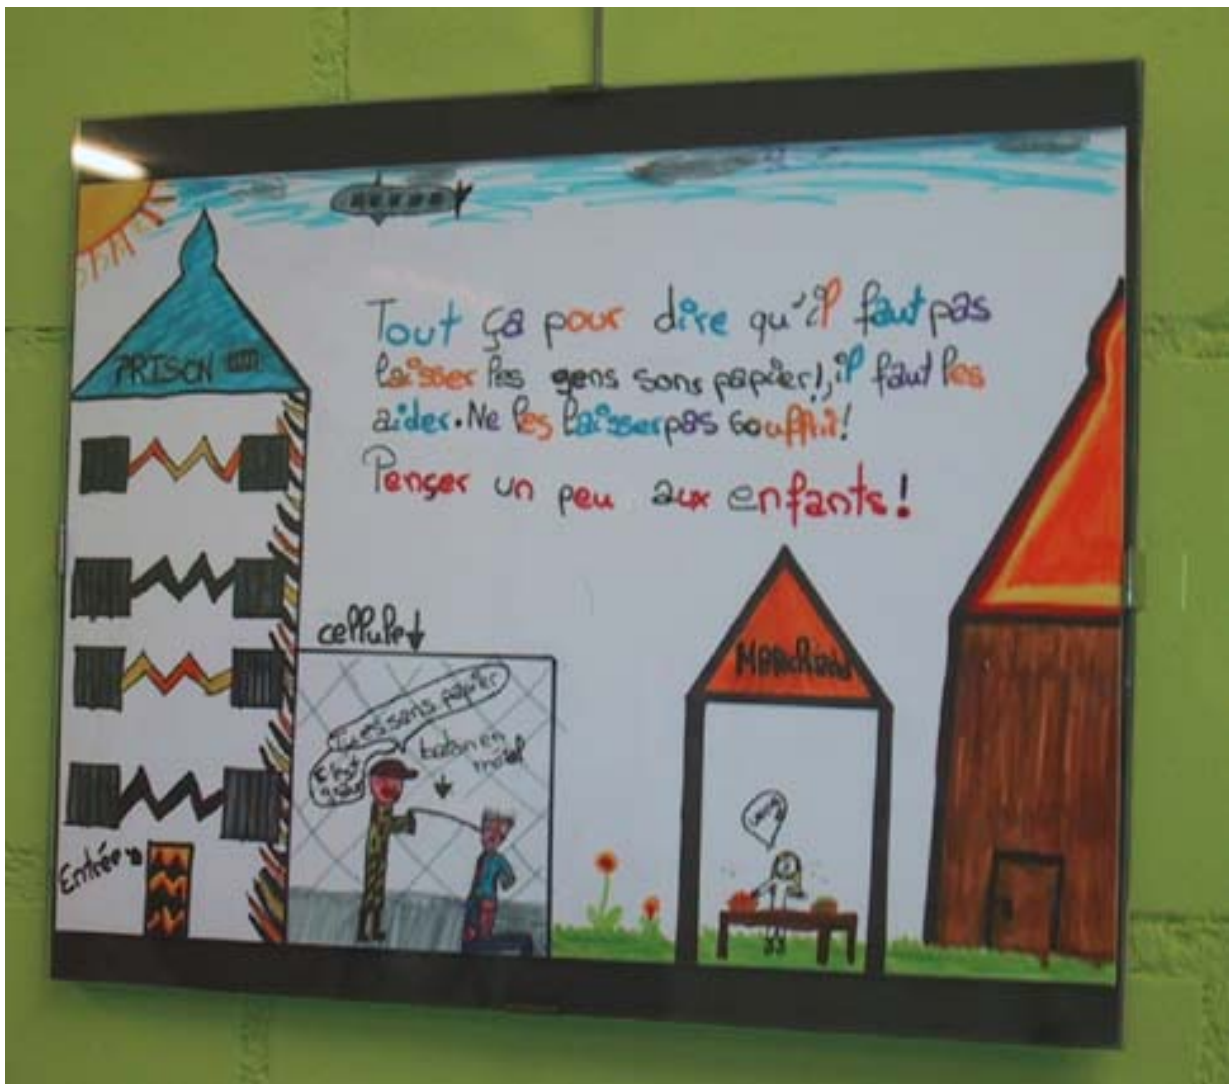 PRISON
Tout ça pour dire qu'il faut pas
laisser les gens sans papier!, il faut les
aider. Ne les laisser pas souffrir!
Penser un peu aux enfants!
cellule
Tu es sans papier
baton en
métal
Entrée